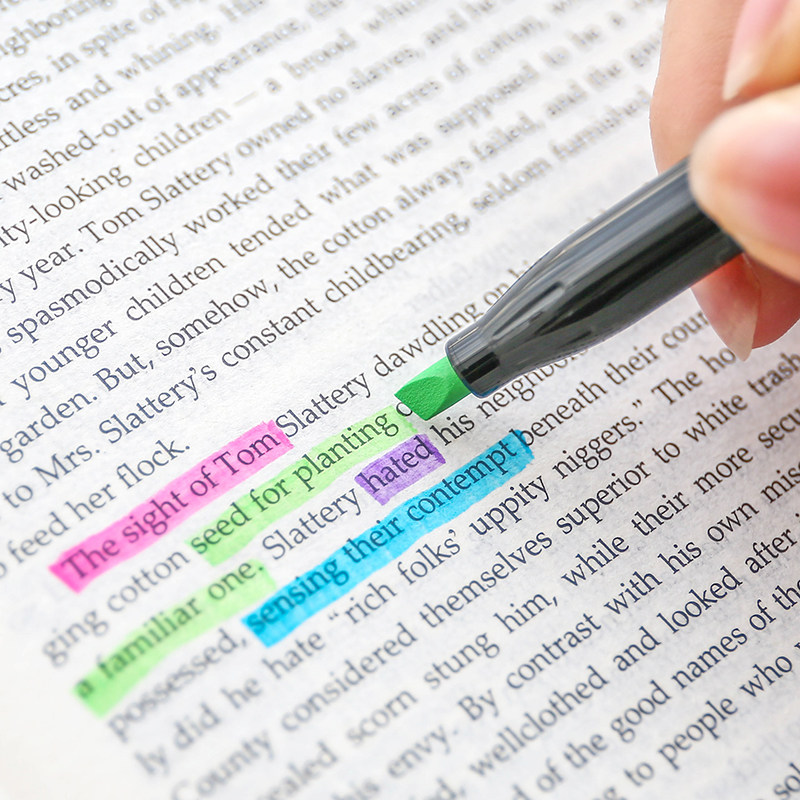 neighboring
acres, in spite of
and whining.
washed-out of appearance, the
-looking children — a brood
year. Tom Slattery owned no slaves, and he
spasmodically worked their few acres of cotton,
younger children tended what was supposed to be a
garden. But, somehow, the cotton always failed, and the
to Mrs. Slattery's constant childbearing, seldom furnished
feed her flock.
The sight of Tom Slattery dawdling on
ging cotton seed for planting
a familiar one. Slattery hated his
possessed, sensing their contempt beneath their
ly did he hate "rich folks' uppity niggers." The
County considered themselves superior to white
scorn stung him, while their more
his envy. By contrast with his own
wellclothed and looked after
of the good names of the
to people who